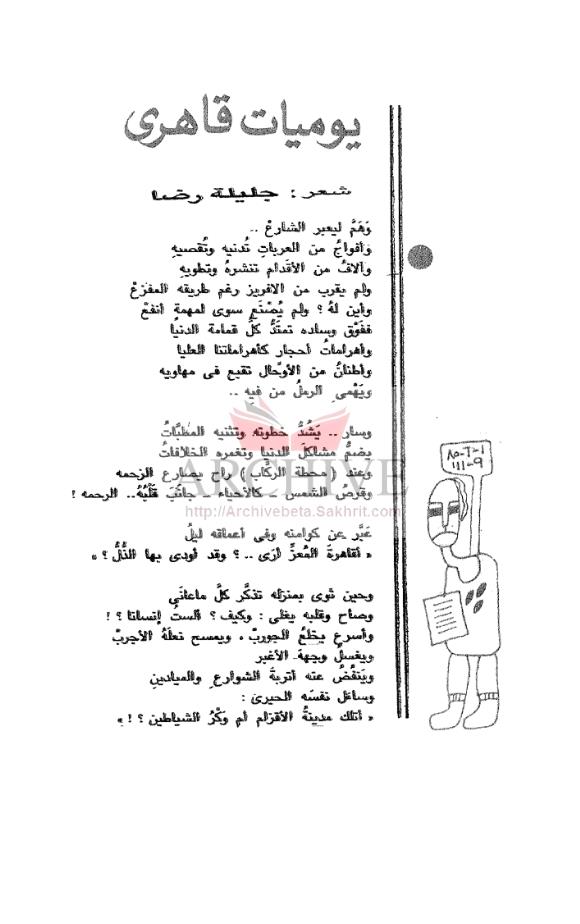 يوميات قاهرى
شعر : جليلة رضا
وَهَمَّ ليعبر الشارعْ ..
وأفواجُ من العربات تُدنيه وتُقصيهِ
وآلافُ من الأقدام تنشرهُ وتطويهِ
ولم يقرب من الافريز رغم طريقه المفزعْ
وأين لهُ ؟ ولم يُصْنَع سوى لمهمةٍ أنفعْ
ففَوْق وساده تمتدُّ كلُّ قمامة الدنيا
وأهراماتُ أحجار كأهراماتنا العليا
وأطنانُ من الأوْحال تقبع فى مهاويه
ويَهْمى الرملُ من فيهِ ..
وسار .. يَشُدُّ خطوته وتثنيه المطبَّاتُ
يضمُّ مشاكلَ الدنيا وتغمره الخلافاتُ
وعند ( محطة الركاب ) راح يصارع الزحمه
وقرصُ الشمس .. كالأحياء .. جانَبَ قَلْبُهُ.. الرحمه !
عَبَّر عن كوامنه وفى أعماقه ليلُ
« أقاهرةَ المُعزِّ أرَى .. ؟ وقد أودى بها الذُّلُّ ؟ »
وحين ثَوى بمنزله تذكَّر كلَّ ماعانَى
وصاح وقلبه يغلى : وكيف ؟ ألستُ إنسانا ؟ !
وأسرع يخلعُ الجوربْ ، ويمسح نعلَهُ الأجربْ
ويغسلُ وجههَ الأغبر
ويَنفُضُ عنه أتربةَ الشوارعِ والميادينِ
وساءل نفسَه الحيرىَ :
« أتلك مدينةُ الأقزام أم وَكْرُ الشياطين ؟ ! »
ARCHIVE
http://Archivebeta.Sakhrit.com